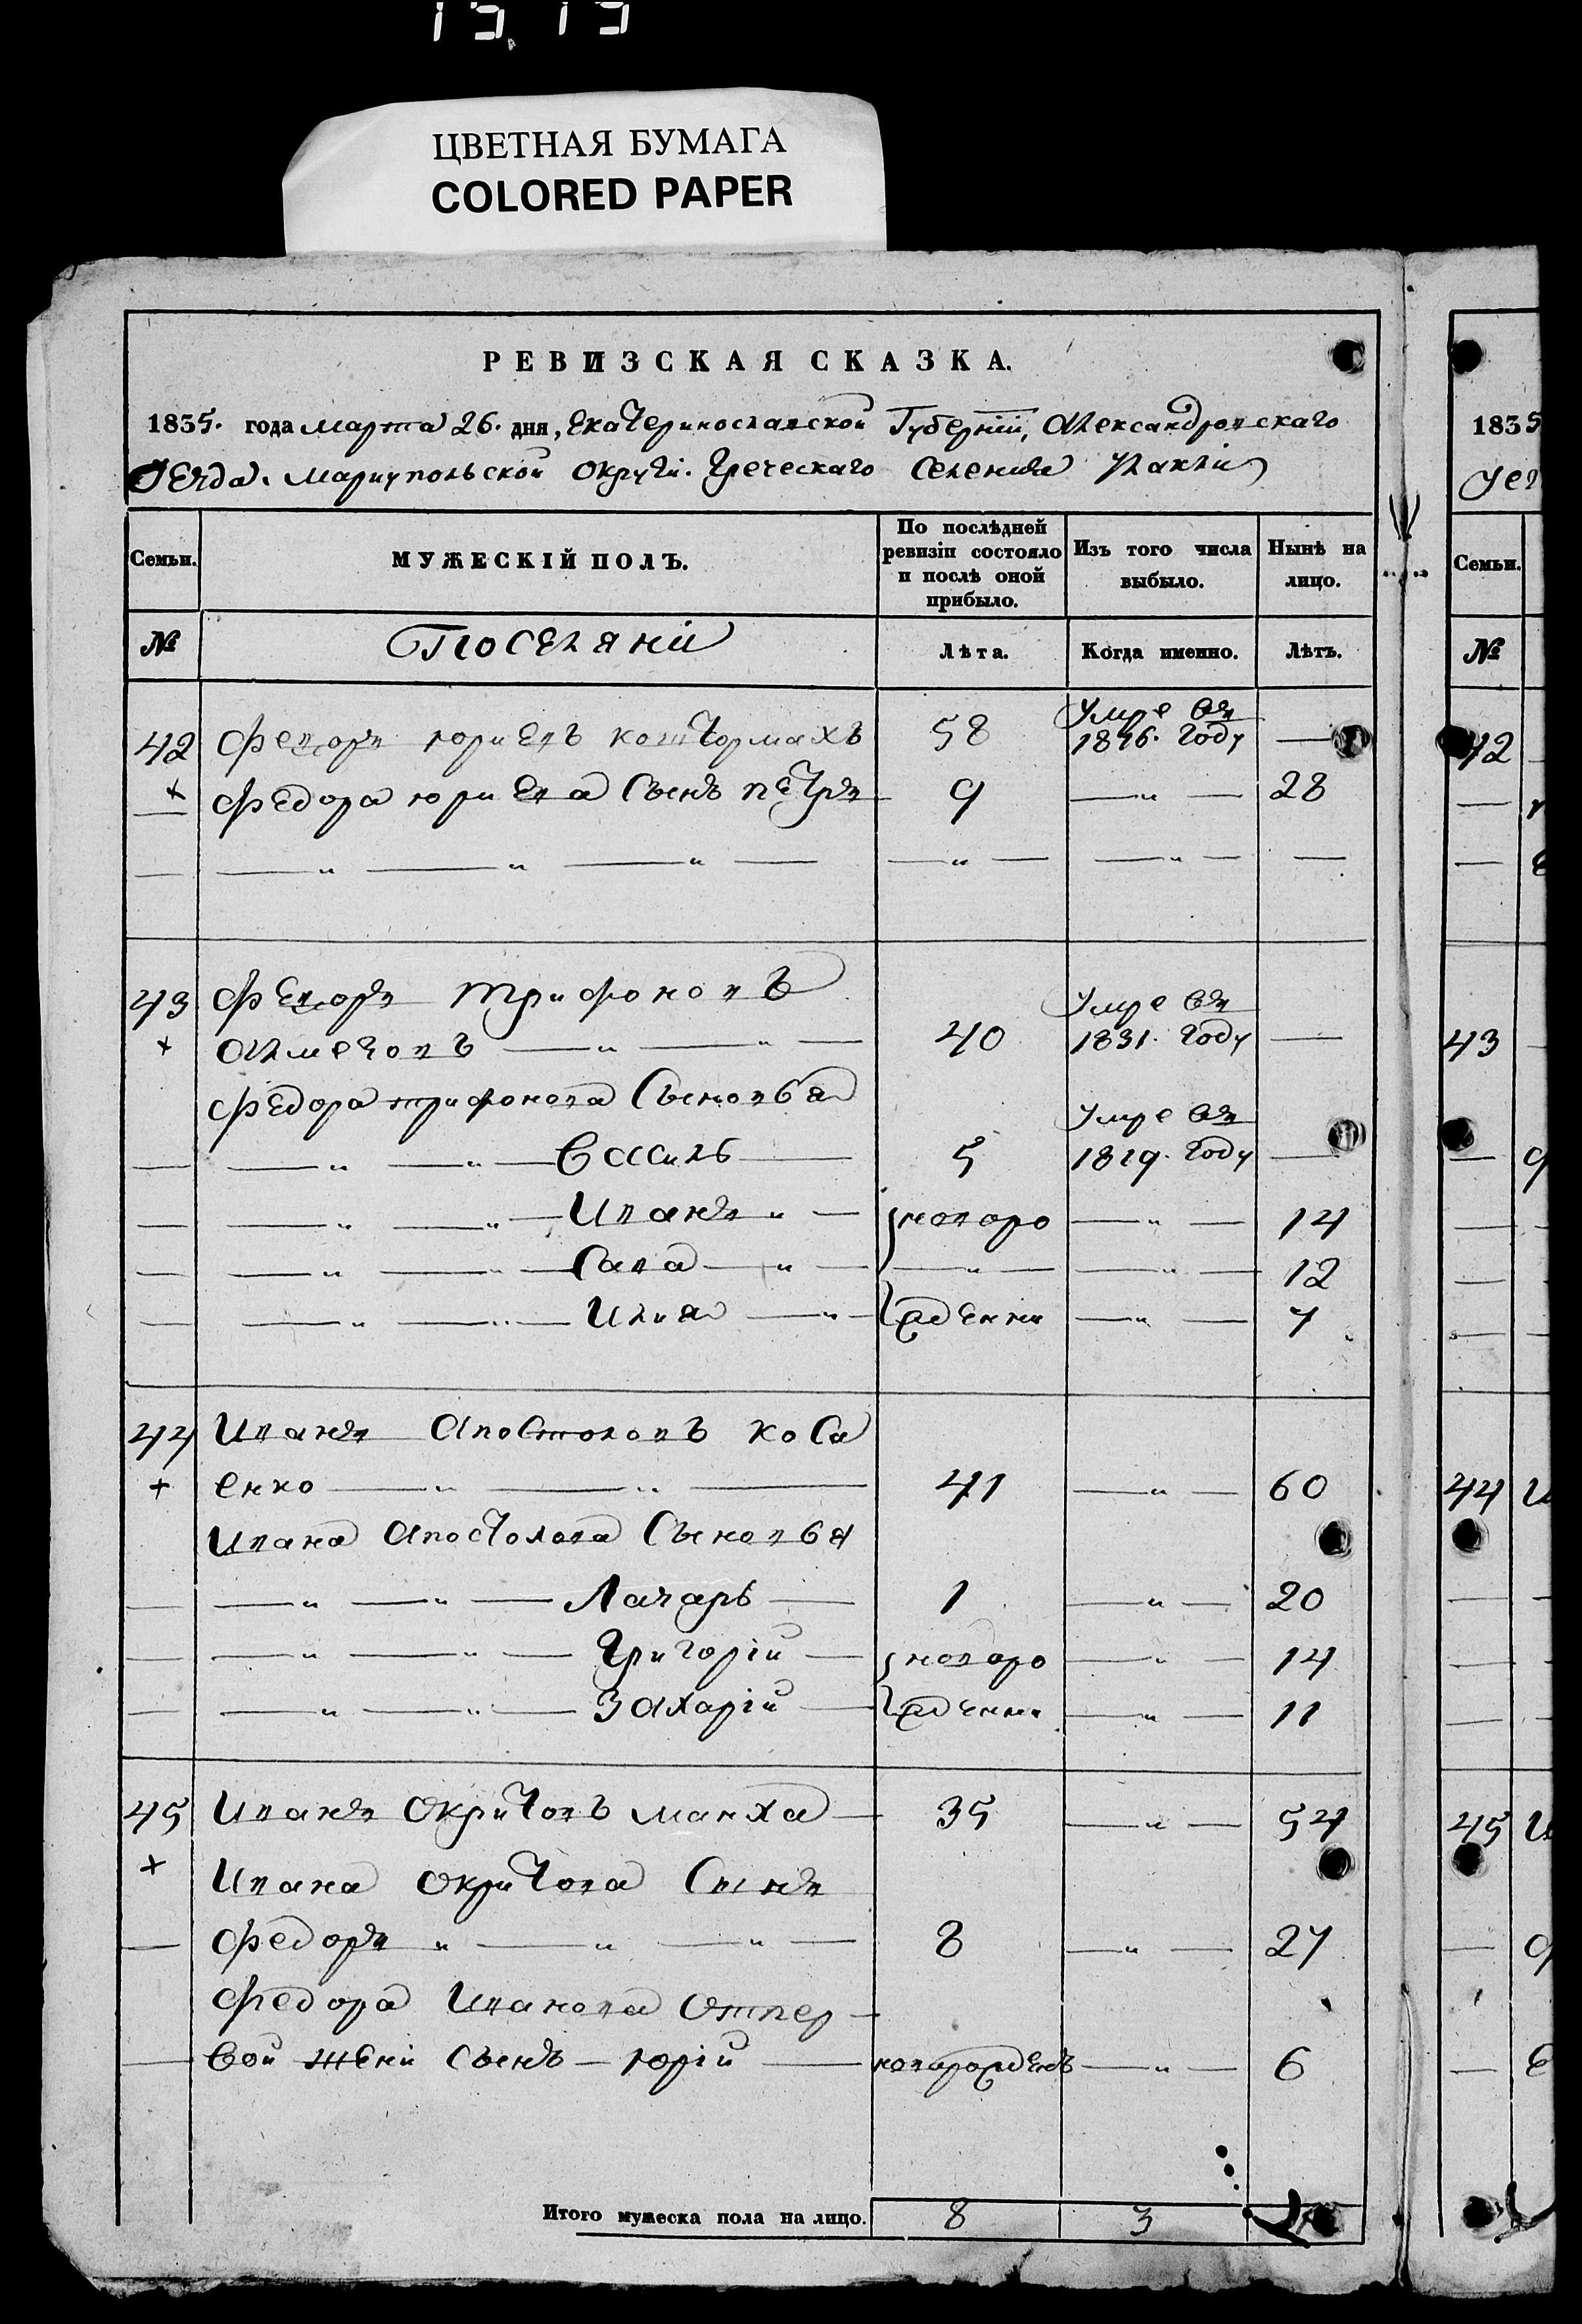 ЦВЕТНАЯ БУМАГА
COLORED PAPER
РЕВИЗСКАЯ СКАЗКА.
1835. года марта 26. дня, Екатеринославской Губерніи, Александровскаго
Уезда. Мариупольской округи. Греческаго Селения
Семьи. МУЖЕСКІЙ ПОЛЪ. По послѣдней ревизіи состояло и послѣ оной прибыло. Изъ того числа выбыло. Нынѣ на лицо.
№ Поселяни Лѣта. Когда именно. Лѣтъ.
42 Федоръ юриевъ 58 Умре въ 1816. году —
Федора юриева Сынъ петръ 9 — 28
43 Федоръ трифоновъ
40 Умре въ 1831. году —
Федора трифонова Сыновья
Василь 5 Умре въ 1829. году —
Иванъ новоро 14
Сава 12
Илия жденни 7
44 Иванъ Апостоловъ коса
енко 41 60
Ивана Апостолова Сыновья
Лазарь 1 20
Григорій новоро 14
Захарій жденни 11
45 Иванъ Окритовъ манха 35 54
Ивана Окритова Сынъ
Федоръ 8 27
Федора Иванова Отпер
вой жени Сынъ юрій новорожденъ 6
Итого мужеска пола на лицо. 8 3
1835
Семьи.
№
42
43
44
45